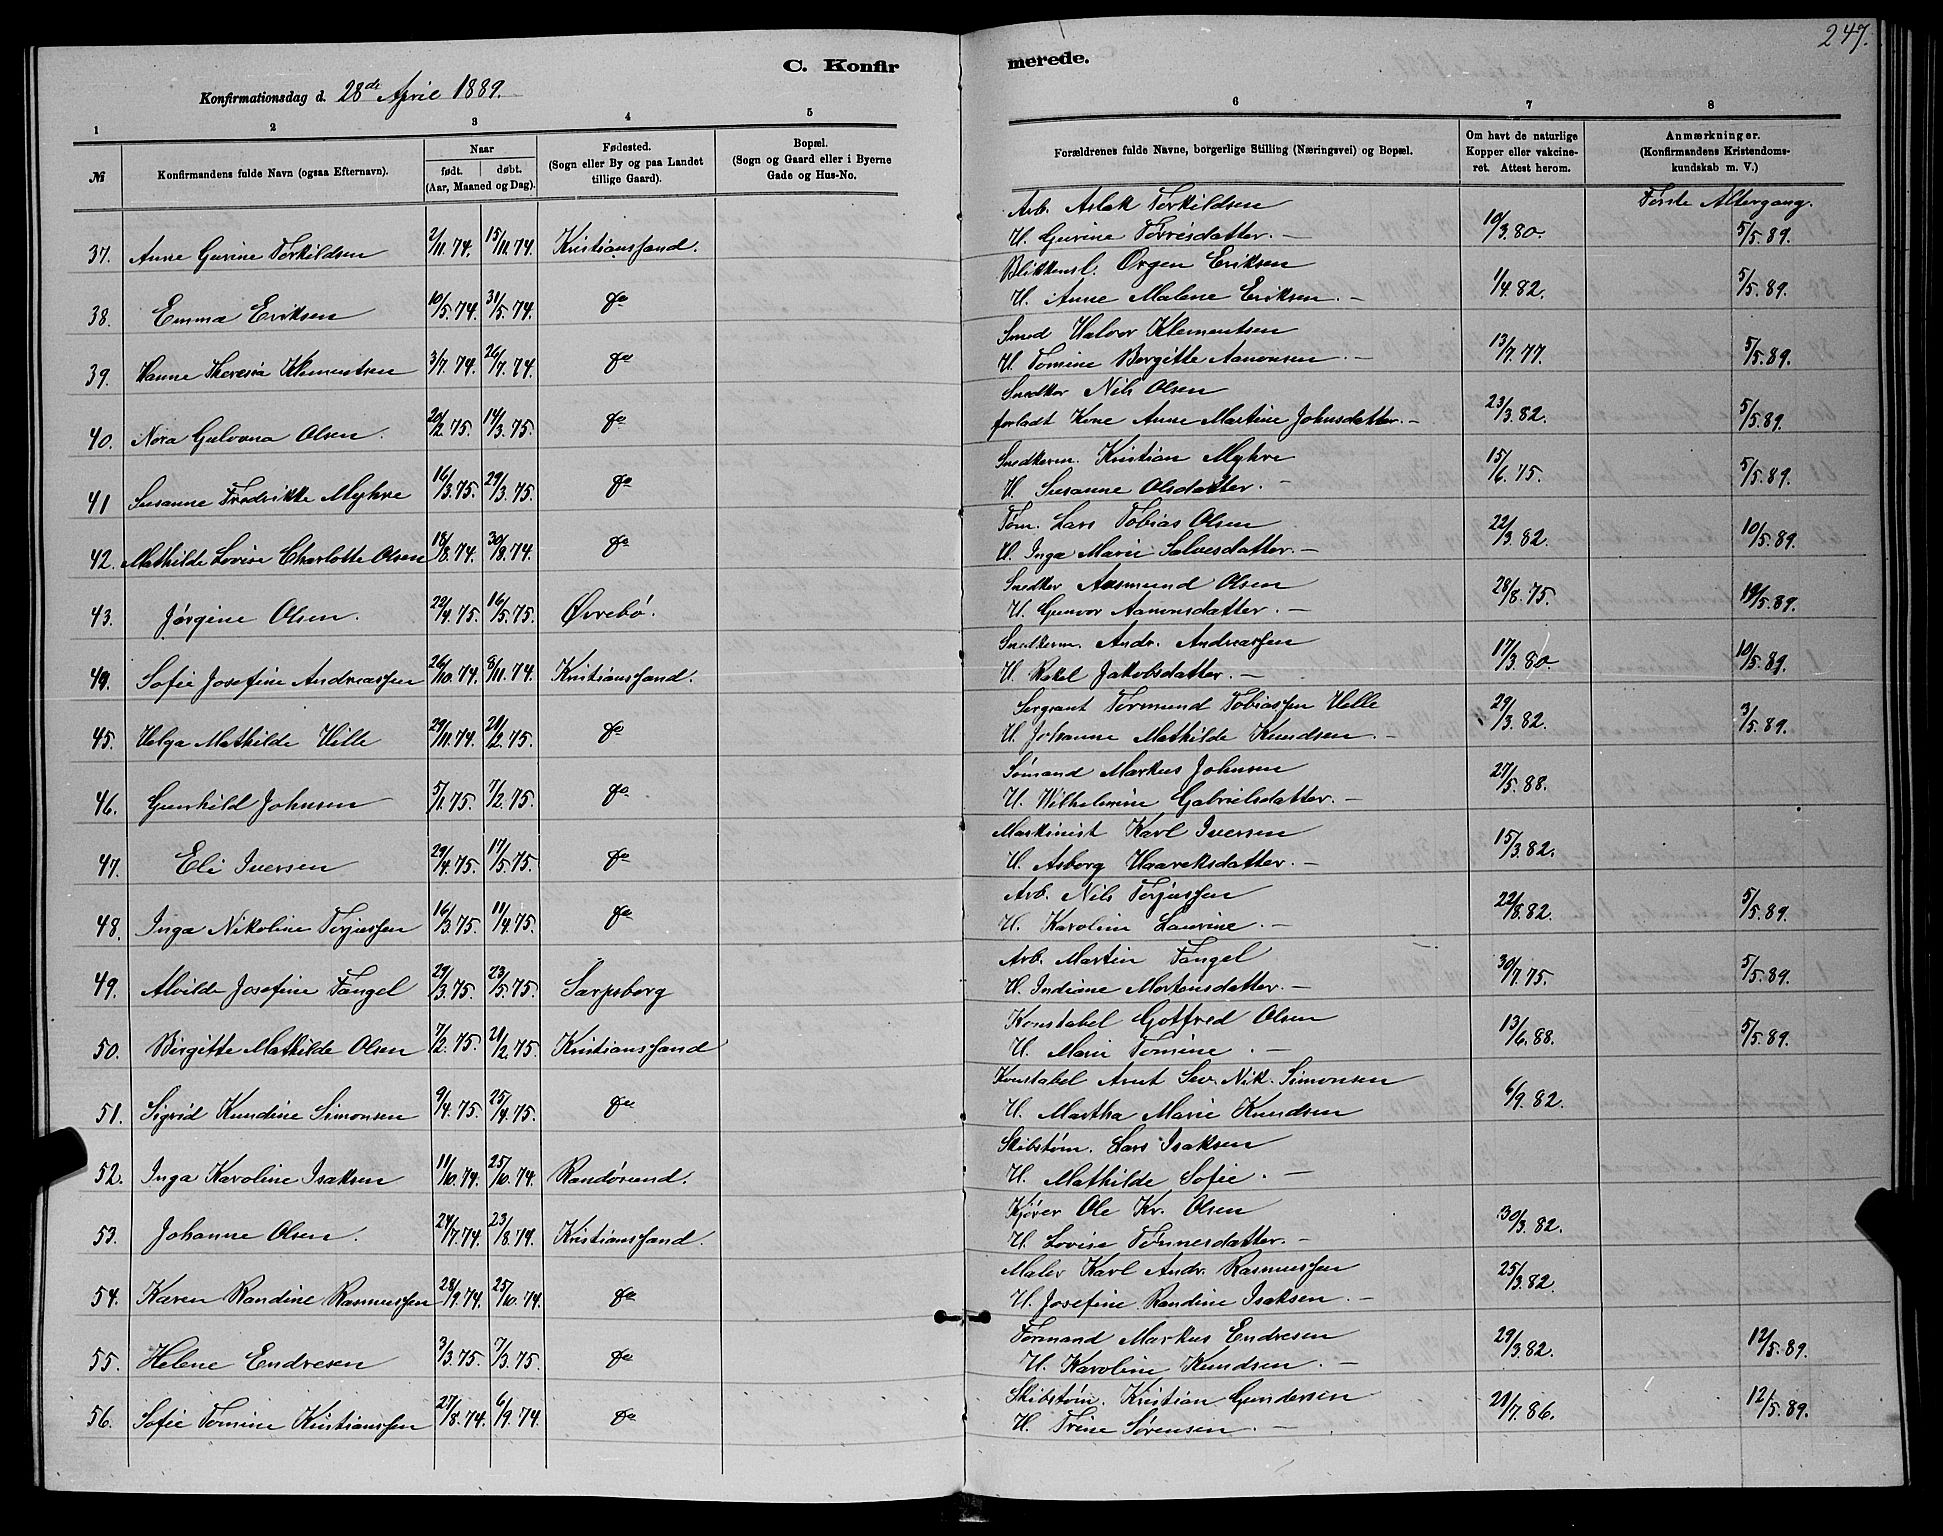 247.
C. Konfirmerede.
Konfirmationsdag d. 28de April 1889.
1 2 3 4 5 6 7 8
№ Konfirmandens fulde Navn (ogsaa Efternavn). Naar født. døbt. (Aar, Maaned og Dag). Fødested. (Sogn eller By og paa Landet tillige Gaard). Bopæl. (Sogn og Gaard eller i Byerne Gade og Hus-No. Forældrenes fulde Navne, borgerlige Stilling (Næringsvei) og Bopæl. Om havt de naturlige Kopper eller vakcineret. Attest herom. Anmærkninger. (Konfirmandens Kristendomskundskab m. V.)
Første Altergang.
Arb. Aslak Torkildsen
37. Anne Gurine Torkildsen 2/11.74. 15/11.74. Kristianssand. H. Gurine Torrisdatter. — 10/3.80. 5/5.89.
Blikkensl. Ørgen Eriksen
38. Emma Eriksen 10/5.74. 31/5.74. do H. Anne Malene Eriksen. — 1/4.82. 5/5.89.
Smed Halvor Klementsen
39. Hanne Theresia Klementsen 3/7.74. 26/7.74. do H. Tomine Bergitte Aanonsen. — 13/7.77. 5/5.89.
Snedker Nils Olsen
40. Nora Gulovna Olsen. 20/2.75. 14/3.75. do forladt Kone Anne Martine Johnsdatter. — 23/3.82. 5/5.89.
Snedkerm. Kristian Myhre
41 Susanne Fredrikke Myhre 16/3.75. 29/3.75. do H. Susanne Olsdatter. — 15/6.75. 5/5.89.
Tøm. Lars Tobias Olsen
42. Mathilde Lovise Charlotte Olsen 18/8.74. 30/8.74. do H. Inga Marie Salvesdatter. — 22/3.82. 10/5.89.
Snedker Aasmund Olsen
43. Jørgine Olsen. 22/4.75. 16/5.75. Øvrebø. H. Gunvor Aanonsdatter. — 28/8.75. 19/5.89.
Snedkerm. Andr. Andreassen
44. Sofie Josefine Andreassen 26/10.74. 8/11.74. Kristianssand. H. Rakel Jakobsdatter. — 17/3.80. 10/5.89.
Sergeant Tormund Tobiassen Helle
45. Helga Mathilde Helle 29/11.74. 21/2.75. do H. Johanne Mathilde Knudsen. — 29/3.82. 3/5.89.
Sømand Markus Johnsen
46. Gunhild Johnsen 5/1.75. 7/2.75. do H. Wilhelmine Gabrielsdatter. — 27/5.88.
Maskinist Karl Iversen
47. Eli Iversen 29/4.75. 17/5.75. do H. Asborg Haareksdatter. — 15/3.82.
Arb. Nils Terjussen
48. Inga Nikoline Terjussen 16/3.75. 11/4.75. do H. Karoline Laurine. — 22/8.82. 5/5.89.
Arb. Martin Fangel
49. Alvilde Josefine Fangel 29/3.75. 23/5.75. Sarpsborg H. Indiane Mortensdatter. — 30/7.75. 5/5.89.
Konstabel Gotfred Olsen
50. Birgitte Mathilde Olsen 7/2.75. 21/2.75. Kristianssand H. Marie Tomine. — 13/6.88. 5/5.89.
Konstabel Arnt Sev. Nik. Simonsen
51. Sigrid Kundine Simonsen 9/4.75. 25/4.75. do H. Martha Marie Knudsen 6/9.82.
Skibstøm. Lars Isaksen
52. Inga Karoline Isaksen 11/10.74. 25/10.74. Randøsund. H. Mathilde Sofie. —
Kjører Ole Kr. Olsen
53. Johanne Olsen. 24/7.74. 23/8.74. Kristianssand. H. Lovise Tønnesdatter. — 30/3.82.
Maler Karl Andr. Rasmussen
54. Karen Randine Rasmussen 28/9.74. 25/10.74. do H. Josefine Randine Isaksen. — 25/3.82.
Formand Markus Endresen
55. Helene Endresen 3/3.75. 7/3.75. do H. Karoline Knudsen. — 29/3.82. 12/5.89.
Skibstøm. Kristian Gundersen
56. Sofie Tomine Kristianssen 27/8.74. 6/9.74. do H. Trine Sørensen. — 21/7.86. 12/5.89.